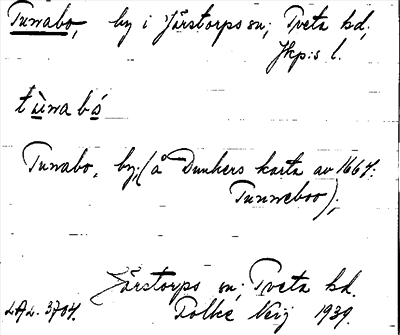 Tunnabo, by i Järstorps sn; Tveta hd,
Jkp:s l.
tùnnabó
Tunnabo, by; (å Dunkers karta av 1667:
Tunneboo);
Järstorps sn; Tveta hd.
LAL. 3704. Folke Neij 1939